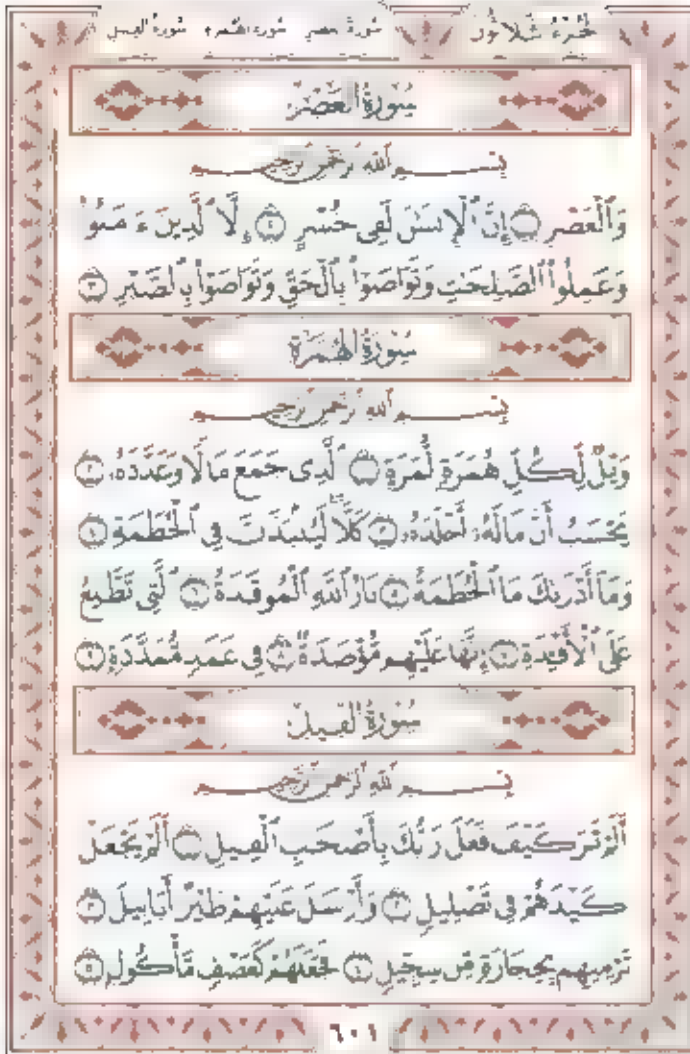 جزء ثلاثون سورة العصر سورة الهمزة سورة الفيل
سُورَةُ العَصْرِ
بِسْمِ ٱللَّهِ ٱلرَّحْمَٰنِ ٱلرَّحِيمِ
وَٱلْعَصْرِ ١ إِنَّ ٱلْإِنسَٰنَ لَفِى خُسْرٍ ٢ إِلَّا ٱلَّذِينَ ءَامَنُوا۟
وَعَمِلُوا۟ ٱلصَّٰلِحَٰتِ وَتَوَاصَوْا۟ بِٱلْحَقِّ وَتَوَاصَوْا۟ بِٱلصَّبْرِ ٣
سُورَةُ الهُمَزَةِ
بِسْمِ ٱللَّهِ ٱلرَّحْمَٰنِ ٱلرَّحِيمِ
وَيْلٌ لِّكُلِّ هُمَزَةٍ لُّمَزَةٍ ١ ٱلَّذِى جَمَعَ مَالًا وَعَدَّدَهُۥ ٢
يَحْسَبُ أَنَّ مَالَهُۥٓ أَخْلَدَهُۥ ٣ كَلَّا ۖ لَيُنۢبَذَنَّ فِى ٱلْحُطَمَةِ ٤
وَمَآ أَدْرَىٰكَ مَا ٱلْحُطَمَةُ ٥ نَارُ ٱللَّهِ ٱلْمُوقَدَةُ ٦ ٱلَّتِى تَطَّلِعُ
عَلَى ٱلْأَفْـِٔدَةِ ٧ إِنَّهَا عَلَيْهِم مُّؤْصَدَةٌ ٨ فِى عَمَدٍ مُّمَدَّدَةٍۭ ٩
سُورَةُ الفِيلِ
بِسْمِ ٱللَّهِ ٱلرَّحْمَٰنِ ٱلرَّحِيمِ
أَلَمْ تَرَ كَيْفَ فَعَلَ رَبُّكَ بِأَصْحَٰبِ ٱلْفِيلِ ١ أَلَمْ يَجْعَلْ
كَيْدَهُمْ فِى تَضْلِيلٍ ٢ وَأَرْسَلَ عَلَيْهِمْ طَيْرًا أَبَابِيلَ ٣
تَرْمِيهِم بِحِجَارَةٍ مِّن سِجِّيلٍ ٤ فَجَعَلَهُمْ كَعَصْفٍ مَّأْكُولٍۭ ٥
٦٠١